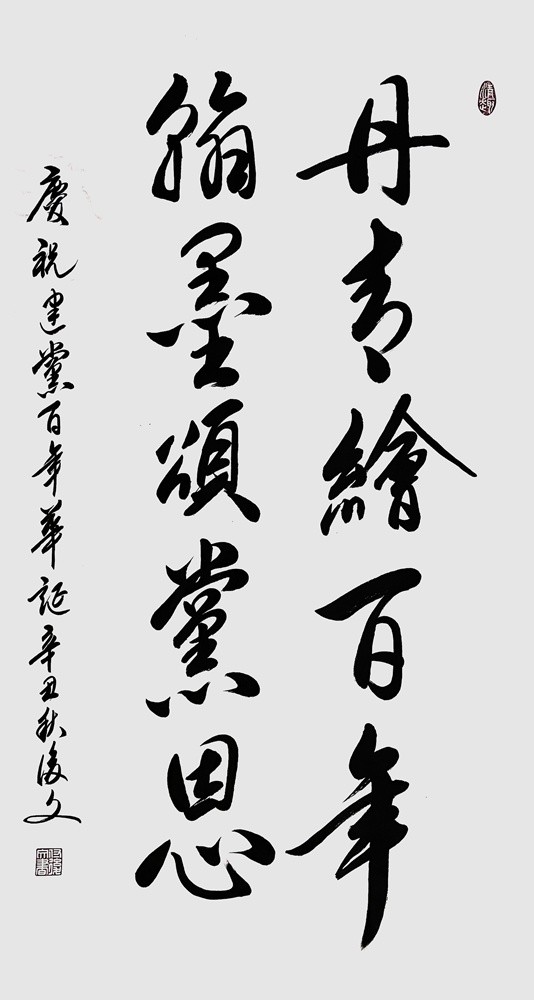 丹青繪百年
翰墨頌黨恩
慶祝建黨百年華誕辛丑秋俊文